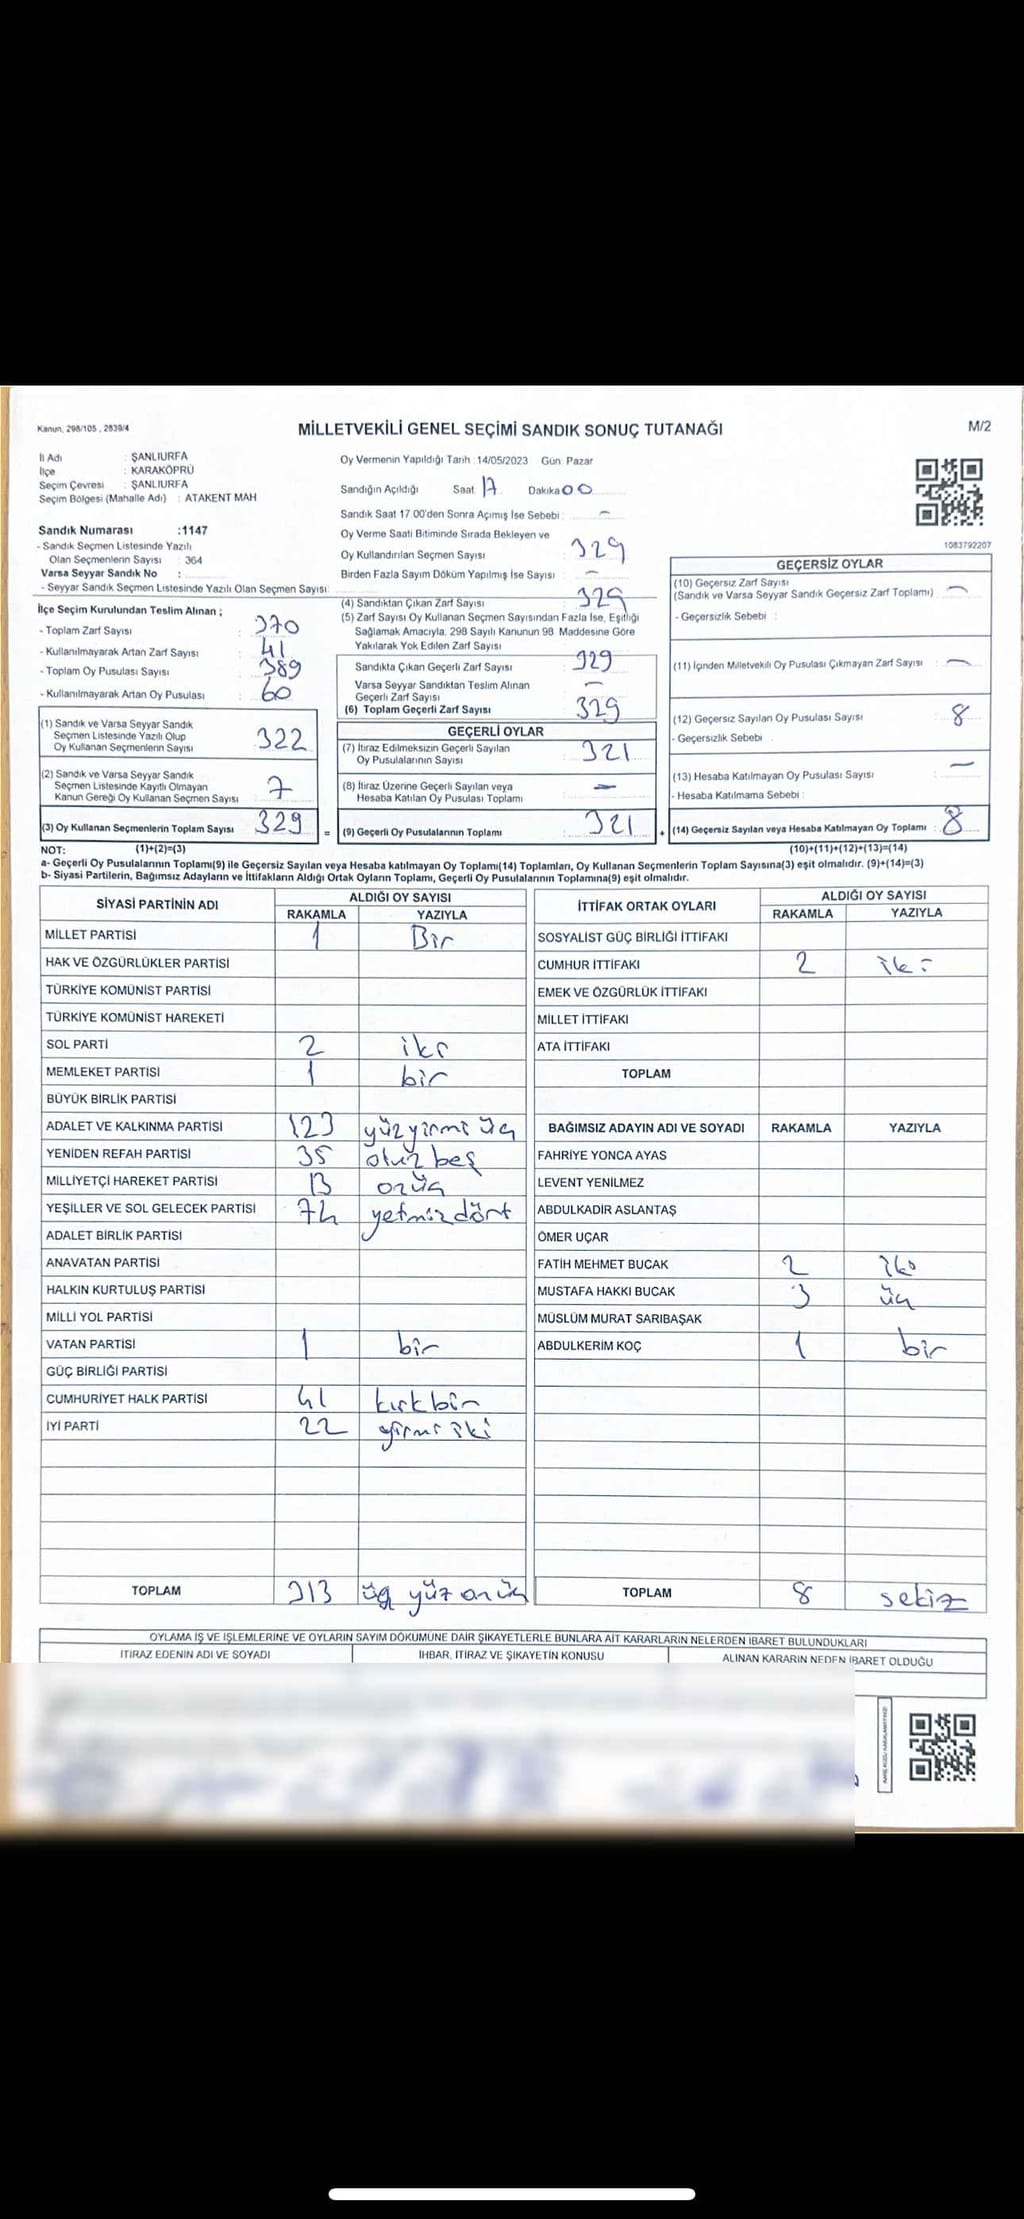 Kanun, 298/105, 2839/4
MİLLETVEKİLİ GENEL SEÇİMİ SANDIK SONUÇ TUTANAĞI
M/2
İl Adı : ŞANLIURFA
İlçe : KARAKÖPRÜ
Seçim Çevresi : ŞANLIURFA
Seçim Bölgesi (Mahalle Adı) : ATAKENT MAH
Oy Vermenin Yapıldığı Tarih : 14/05/2023 Gün: Pazar
Sandığın Açıldığı Saat 17 Dakika 00
Sandık Saat 17.00'den Sonra Açımış İse Sebebi : –
Sandık Numarası :1147
- Sandık Seçmen Listesinde Yazılı
Olan Seçmenlerin Sayısı : 364
Varsa Seyyar Sandık No :
- Seyyar Sandık Seçmen Listesinde Yazılı Olan Seçmen Sayısı:
Oy Verme Saati Bitiminde Sırada Bekleyen ve
Oy Kullandırılan Seçmen Sayısı : 329
Birden Fazla Sayım Döküm Yapılmış İse Sayısı : –
1083792207
İlçe Seçim Kurulundan Teslim Alınan ;
- Toplam Zarf Sayısı : 370
- Kullanılmayarak Artan Zarf Sayısı : 41
- Toplam Oy Pusulası Sayısı : 389
- Kullanılmayarak Artan Oy Pusulası : 60
(1) Sandık ve Varsa Seyyar Sandık
Seçmen Listesinde Yazılı Olup
Oy Kullanan Seçmenlerin Sayısı : 322
(2) Sandık ve Varsa Seyyar Sandık
Seçmen Listesinde Kayıtlı Olmayan
Kanun Gereği Oy Kullanan Seçmen Sayısı : 7
(3) Oy Kullanan Seçmenlerin Toplam Sayısı : 329
(4) Sandıktan Çıkan Zarf Sayısı : 329
(5) Zarf Sayısı Oy Kullanan Seçmen Sayısından Fazla İse, Eşitliği
Sağlamak Amacıyla, 298 Sayılı Kanunun 98. Maddesine Göre
Yakılarak Yok Edilen Zarf Sayısı
Sandıkta Çıkan Geçerli Zarf Sayısı : 329
Varsa Seyyar Sandıktan Teslim Alınan
Geçerli Zarf Sayısı : –
(6) Toplam Geçerli Zarf Sayısı : 329
GEÇERLİ OYLAR
(7) İtiraz Edilmeksizin Geçerli Sayılan
Oy Pusulalarının Sayısı : 321
(8) İtiraz Üzerine Geçerli Sayılan veya
Hesaba Katılan Oy Pusulası Toplamı : –
= (9) Geçerli Oy Pusulalarının Toplamı : 321
GEÇERSİZ OYLAR
(10) Geçersiz Zarf Sayısı
(Sandık ve Varsa Seyyar Sandık Geçersiz Zarf Toplamı) : –
- Geçersizlik Sebebi :
(11) İçinden Milletvekili Oy Pusulası Çıkmayan Zarf Sayısı : –
(12) Geçersiz Sayılan Oy Pusulası Sayısı : 8
- Geçersizlik Sebebi
(13) Hesaba Katılmayan Oy Pusulası Sayısı : –
- Hesaba Katılmama Sebebi :
+ (14) Geçersiz Sayılan veya Hesaba Katılmayan Oy Toplamı : 8
NOT: (1)+(2)=(3) (10)+(11)+(12)+(13)=(14)
a- Geçerli Oy Pusulalarının Toplamı(9) ile Geçersiz Sayılan veya Hesaba katılmayan Oy Toplamı(14) Toplamları, Oy Kullanan Seçmenlerin Toplam Sayısına(3) eşit olmalıdır. (9)+(14)=(3)
b- Siyasi Partilerin, Bağımsız Adayların ve İttifakların Aldığı Ortak Oyların Toplamı, Geçerli Oy Pusulalarının Toplamına(9) eşit olmalıdır.
SİYASİ PARTİNİN ADI ALDIĞI OY SAYISI
RAKAMLA YAZIYLA
MİLLET PARTİSİ 1 Bir
HAK VE ÖZGÜRLÜKLER PARTİSİ
TÜRKİYE KOMÜNİST PARTİSİ
TÜRKİYE KOMÜNİST HAREKETİ
SOL PARTİ 2 iki
MEMLEKET PARTİSİ 1 bir
BÜYÜK BİRLİK PARTİSİ
ADALET VE KALKINMA PARTİSİ 123 yüzyirmi üç
YENİDEN REFAH PARTİSİ 35 otuz beş
MİLLİYETÇİ HAREKET PARTİSİ 13 onüç
YEŞİLLER VE SOL GELECEK PARTİSİ 74 yetmiz dört
ADALET BİRLİK PARTİSİ
ANAVATAN PARTİSİ
HALKIN KURTULUŞ PARTİSİ
MİLLİ YOL PARTİSİ
VATAN PARTİSİ 1 bir
GÜÇ BİRLİĞİ PARTİSİ
CUMHURİYET HALK PARTİSİ 41 kırkbir
İYİ PARTİ 22 yirmi iki
TOPLAM 313 üç yüz onüç
İTTİFAK ORTAK OYLARI ALDIĞI OY SAYISI
RAKAMLA YAZIYLA
SOSYALİST GÜÇ BİRLİĞİ İTTİFAKI
CUMHUR İTTİFAKI 2 iki
EMEK VE ÖZGÜRLÜK İTTİFAKI
MİLLET İTTİFAKI
ATA İTTİFAKI
TOPLAM
BAĞIMSIZ ADAYIN ADI VE SOYADI RAKAMLA YAZIYLA
FAHRİYE YONCA AYAS
LEVENT YENİLMEZ
ABDULKADİR ASLANTAŞ
ÖMER UÇAR
FATİH MEHMET BUCAK 2 iki
MUSTAFA HAKKI BUCAK 3 üç
MÜSLÜM MURAT SARIBAŞAK
ABDULKERİM KOÇ 1 bir
TOPLAM 8 sekiz
OYLAMA İŞ VE İŞLEMLERİNE VE OYLARIN SAYIM DÖKÜMÜNE DAİR ŞİKAYETLERLE BUNLARA AİT KARARLARIN NELERDEN İBARET BULUNDUKLARI
İTİRAZ EDENİN ADI VE SOYADI İHBAR, İTİRAZ VE ŞİKAYETİN KONUSU ALINAN KARARIN NEDEN İBARET OLDUĞU